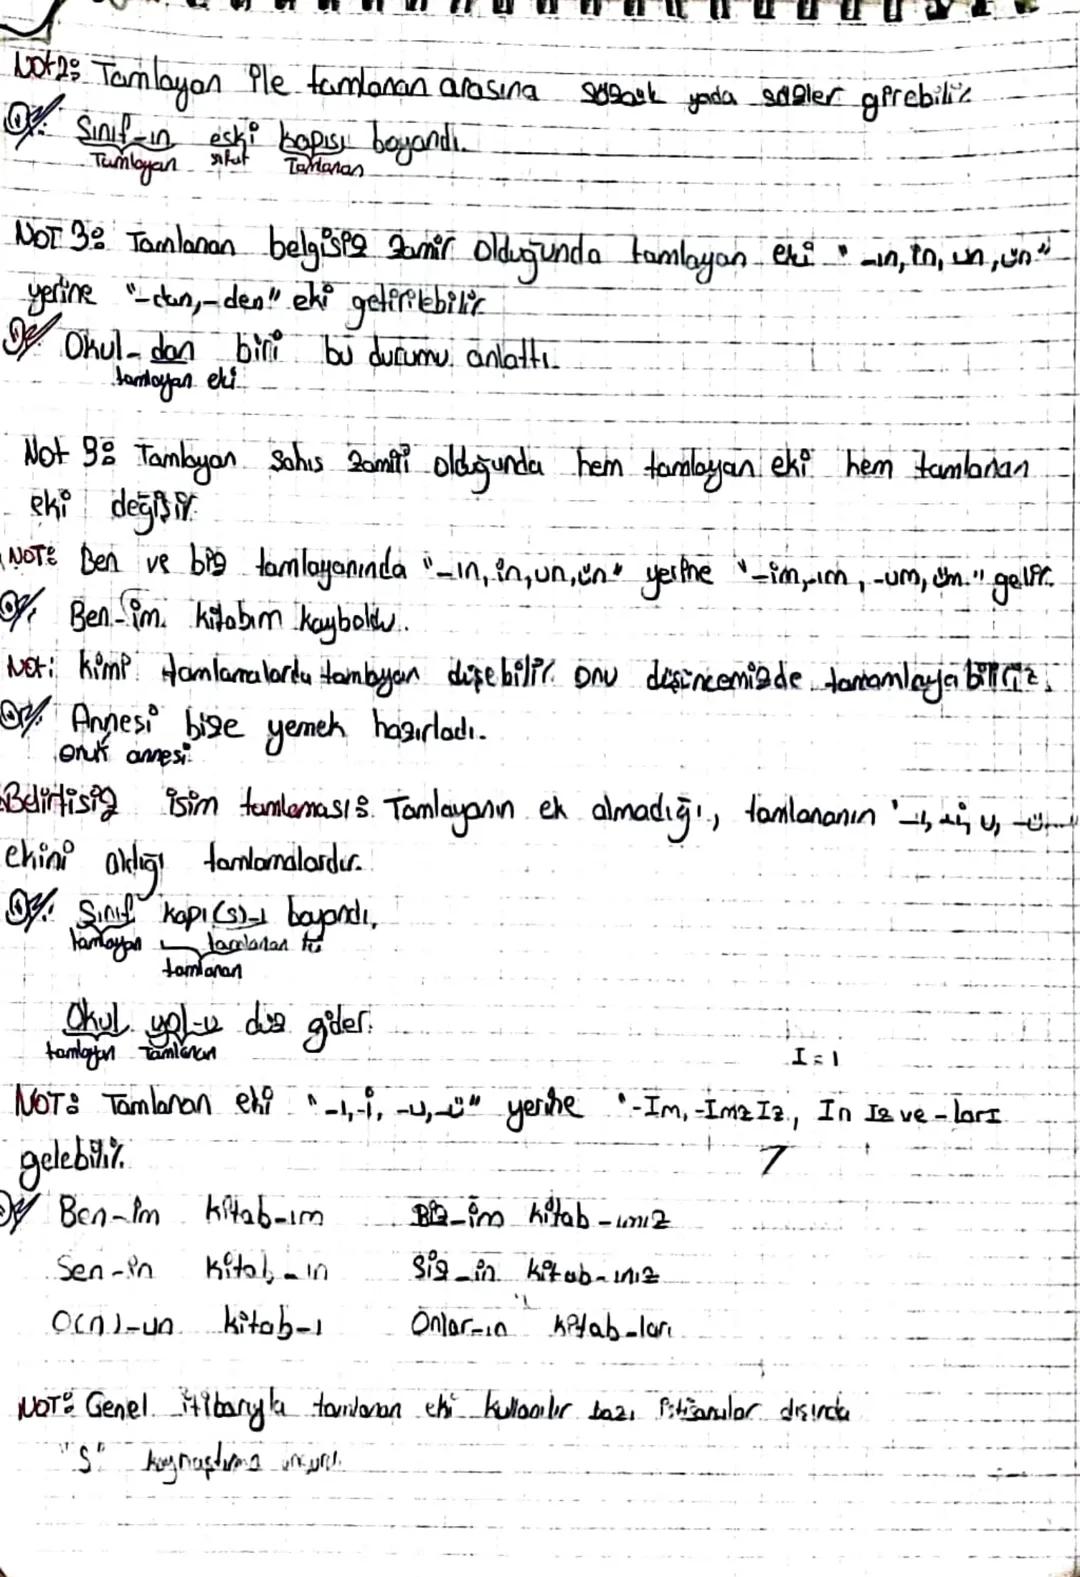 Not2: Tamlayan ile tamlanan arasına sözcük yada sözler girebilir.
Ör: Sınıf-ın eski kapısı boyandı.
Tamlayan sıfat Tamlanan
NOT 3: Tamlanan belgisiz zamir olduğunda tamlayan eki "-ın, in, un, ün"
yerine "-dan, -den" eki getirilebilir.
Ör: Okul-dan biri bu durumu anlattı.
tamlayan eki
Not 3: Tamlayan şahıs zamiri olduğunda hem tamlayan eki hem tamlanan
eki değişir.
NOT: Ben ve biz tamlayanında "-ın, in, un, ün" yerine "-im, -ım, -um, üm." gelir.
Ör: Ben-im kitabım kayboldu.
Not: kimi tamlamalarda tamlayan düşebilir. Onu düşüncemizde tamamlayabiliriz.
Ör: Annesi bize yemek hazırladı.
Onun annesi
Belirtisiz isim tamlaması: Tamlayanın ek almadığı, tamlananın "-ı, -i, u, -ü
ekini aldığı tamlamalardır.
Ör: Sınıf kapı(s)-ı boyandı.
tamlayan tamlanan eki
tamlanan
Okul yol-u düz gider.
tamlayan tamlanan
I = ı
NOT: Tamlanan eki "-ı, -i, -u, -ü" yerine "-Im, -ImzIz, In Iz ve -larI
gelebilir.
Ör: Ben-im kitab-ım Biz-im kitab-ımız
Sen-in kitab-ın Siz-in kitab-ınız
O(n)-un kitab-ı Onlar-ın kitab-ları
NOT: Genel itibarıyla tamlanan eki kullanılır bazı istisnalar dışında
"S" kaynaştırma